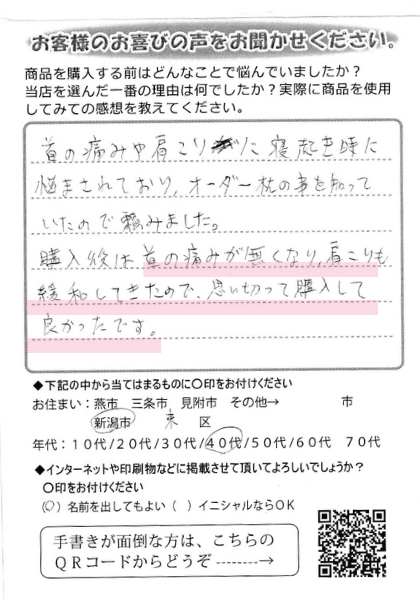 お客様のお喜びの声をお聞かせください。
商品を購入する前はどんなことで悩んでいましたか？
当店を選んだ一番の理由は何でしたか？実際に商品を使用
してみての感想を教えてください。
首の痛みや肩こりに寝起き時に
悩まされており，オーダー枕の事を知って
いたので頼みました。
購入後は首の痛みが無くなり，肩こりも
緩和してきたので、思い切って購入して
良かったです。
◆下記の中から当てはまるものに〇印をお付けください
お住まい：燕市 三条市 見附市 その他→ 市
新潟市 東 区
年代：１０代/２０代/３０代/４０代/５０代/６０代 ７０代
◆インターネットや印刷物などに掲載させて頂いてよろしいでしょうか？
〇印をお付けください
(〇) 名前を出してもよい ( ) イニシャルならＯＫ
手書きが面倒な方は、こちらの
ＱＲコードからどうぞ -------→